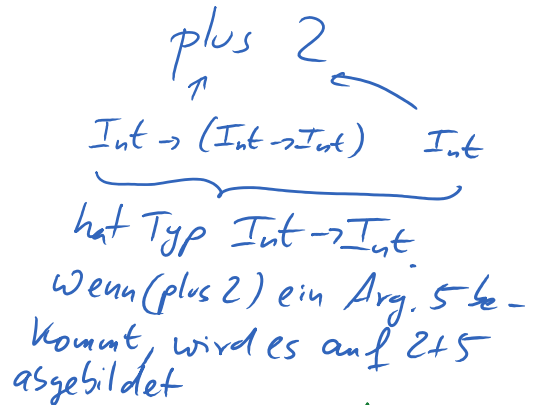 plus 2
Int → (Int → Int) Int
hat Typ Int → Int.
Wenn (plus 2) ein Arg. 5 be-
kommt, wird es auf 2+5
abgebildet